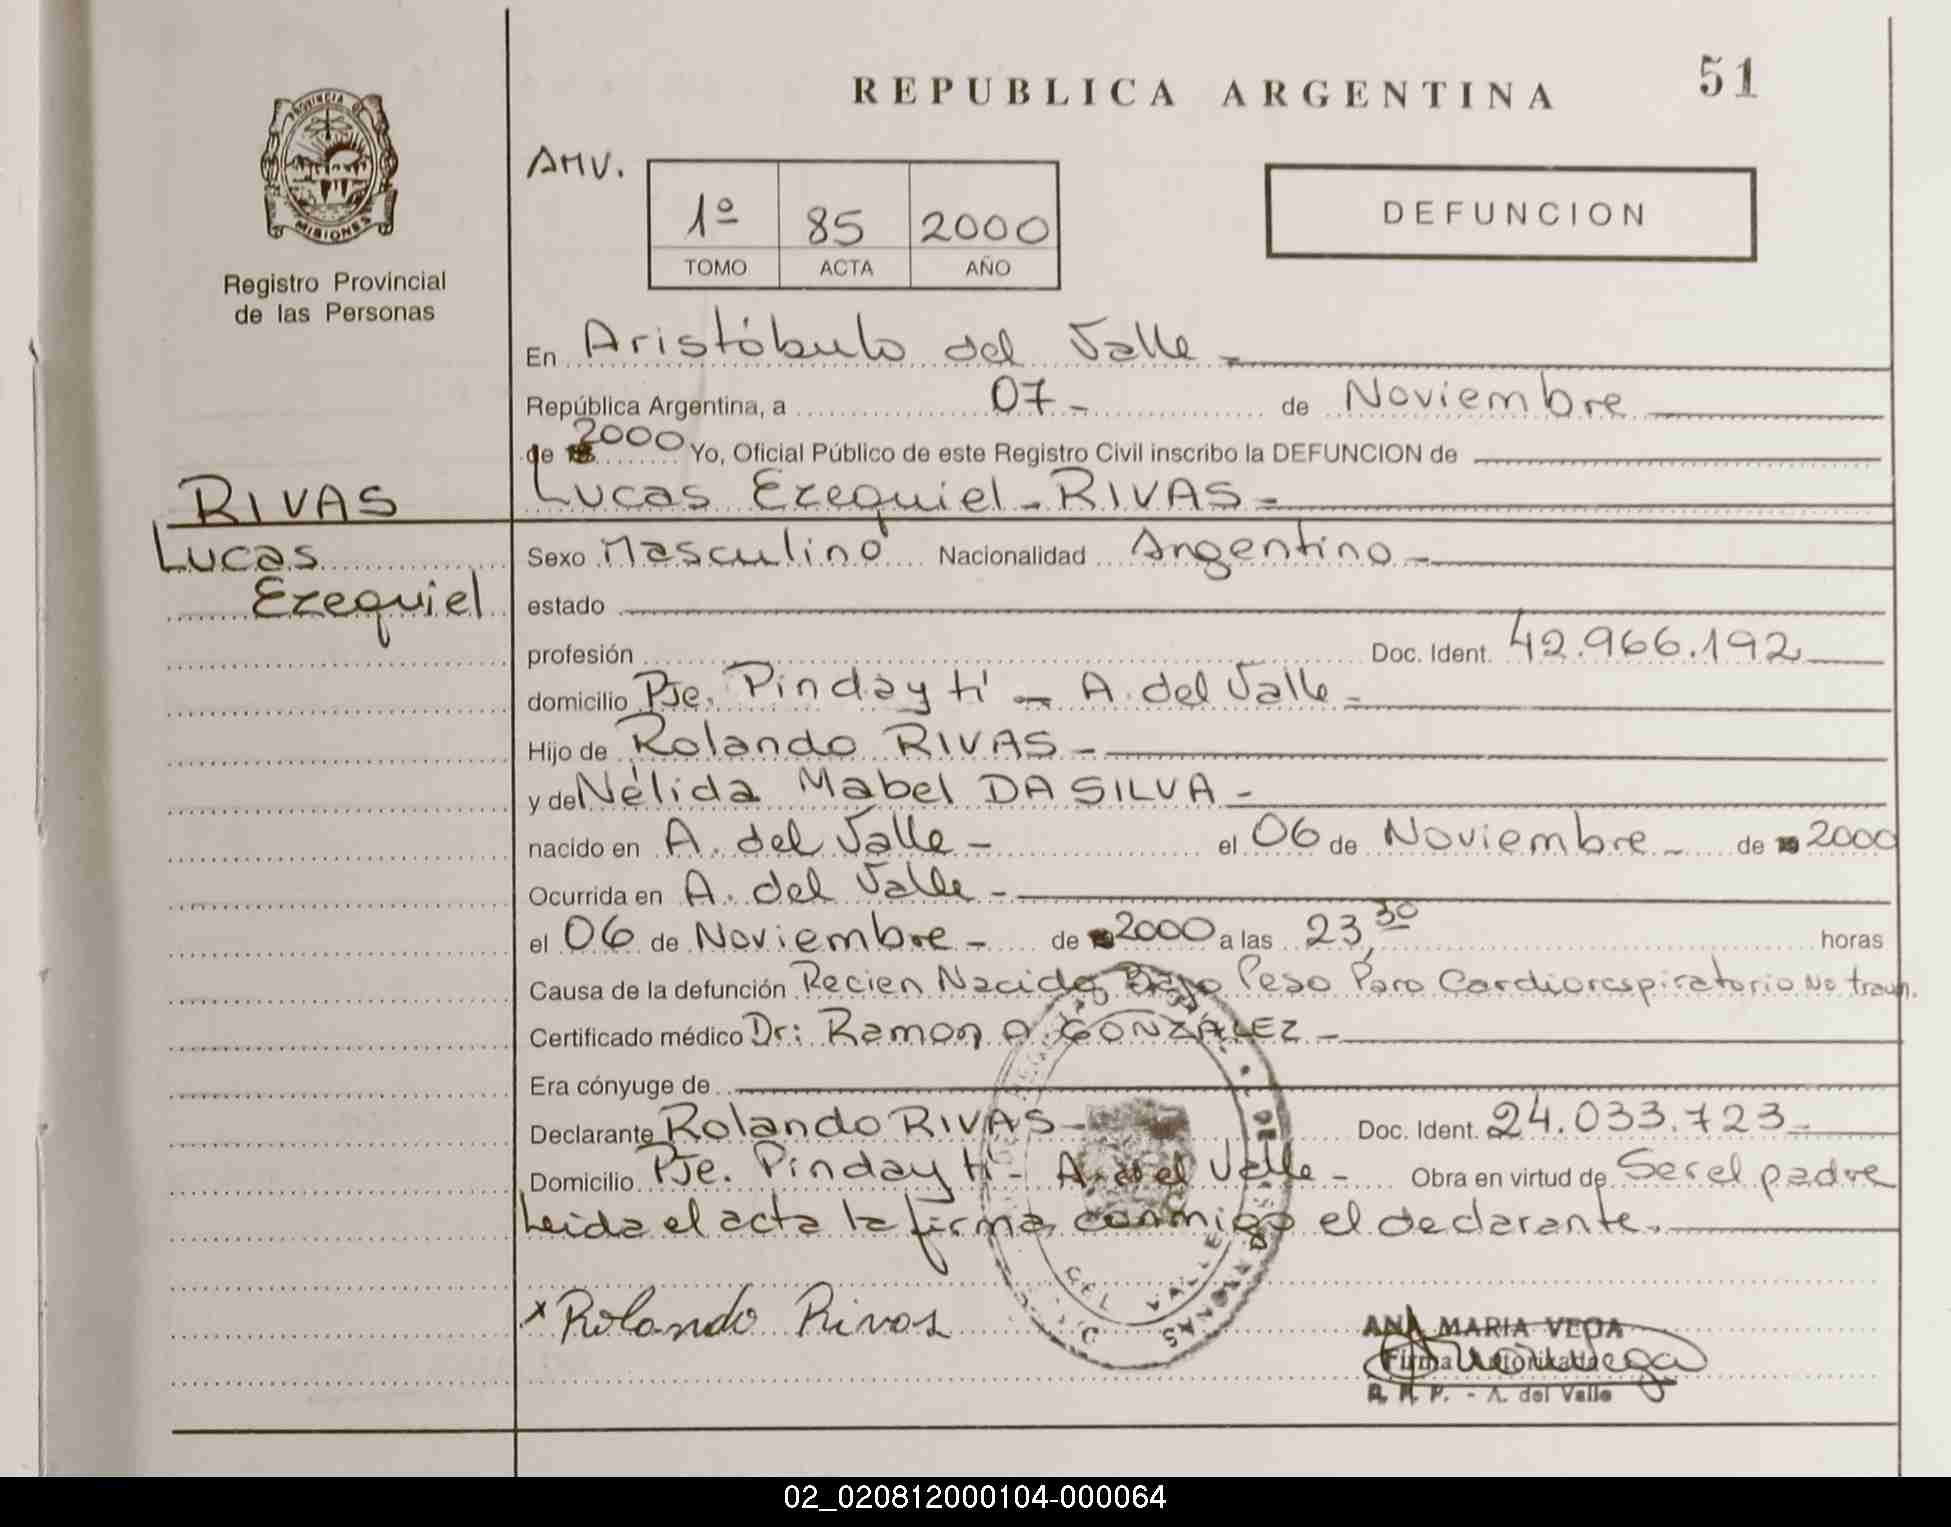 REPUBLICA ARGENTINA
51
PROVINCIA DE
MISIONES
Registro Provincial
de las Personas
AMV.
1º 85 2000
TOMO ACTA AÑO
DEFUNCION
En Aristóbulo del Valle -
República Argentina, a 07- de Noviembre
de 2000 Yo, Oficial Público de este Registro Civil inscribo la DEFUNCION de
Lucas Ezequiel - RIVAS -
RIVAS
Lucas
Ezequiel
Sexo Masculino Nacionalidad Argentino -
estado
profesión Doc. Ident. 42.966.192
domicilio Pje. Pindaytí - A. del Valle -
Hijo de Rolando RIVAS -
y de Nélida Mabel DA SILVA -
nacido en A. del Valle - el 06 de Noviembre - de 2000
Ocurrida en A. del Valle -
el 06 de Noviembre - de 2000 a las 23,30 horas
Causa de la defunción Recien Nacido Bajo Peso Paro Cardiorespiratorio No traum.
Certificado médico Dr: Ramon A. GONZALEZ -
Era cónyuge de
Declarante Rolando RIVAS - Doc. Ident. 24.033.723
Domicilio Pje. Pindaytí - A. del Valle - Obra en virtud de Ser el padre
Leida el acta la firma conmigo el declarante.
DEL VALLE
x Rolando Rivas
ANA MARIA VEGA
Firma Autorizada
R. P. P. - A. del Valle
02_020812000104-000064